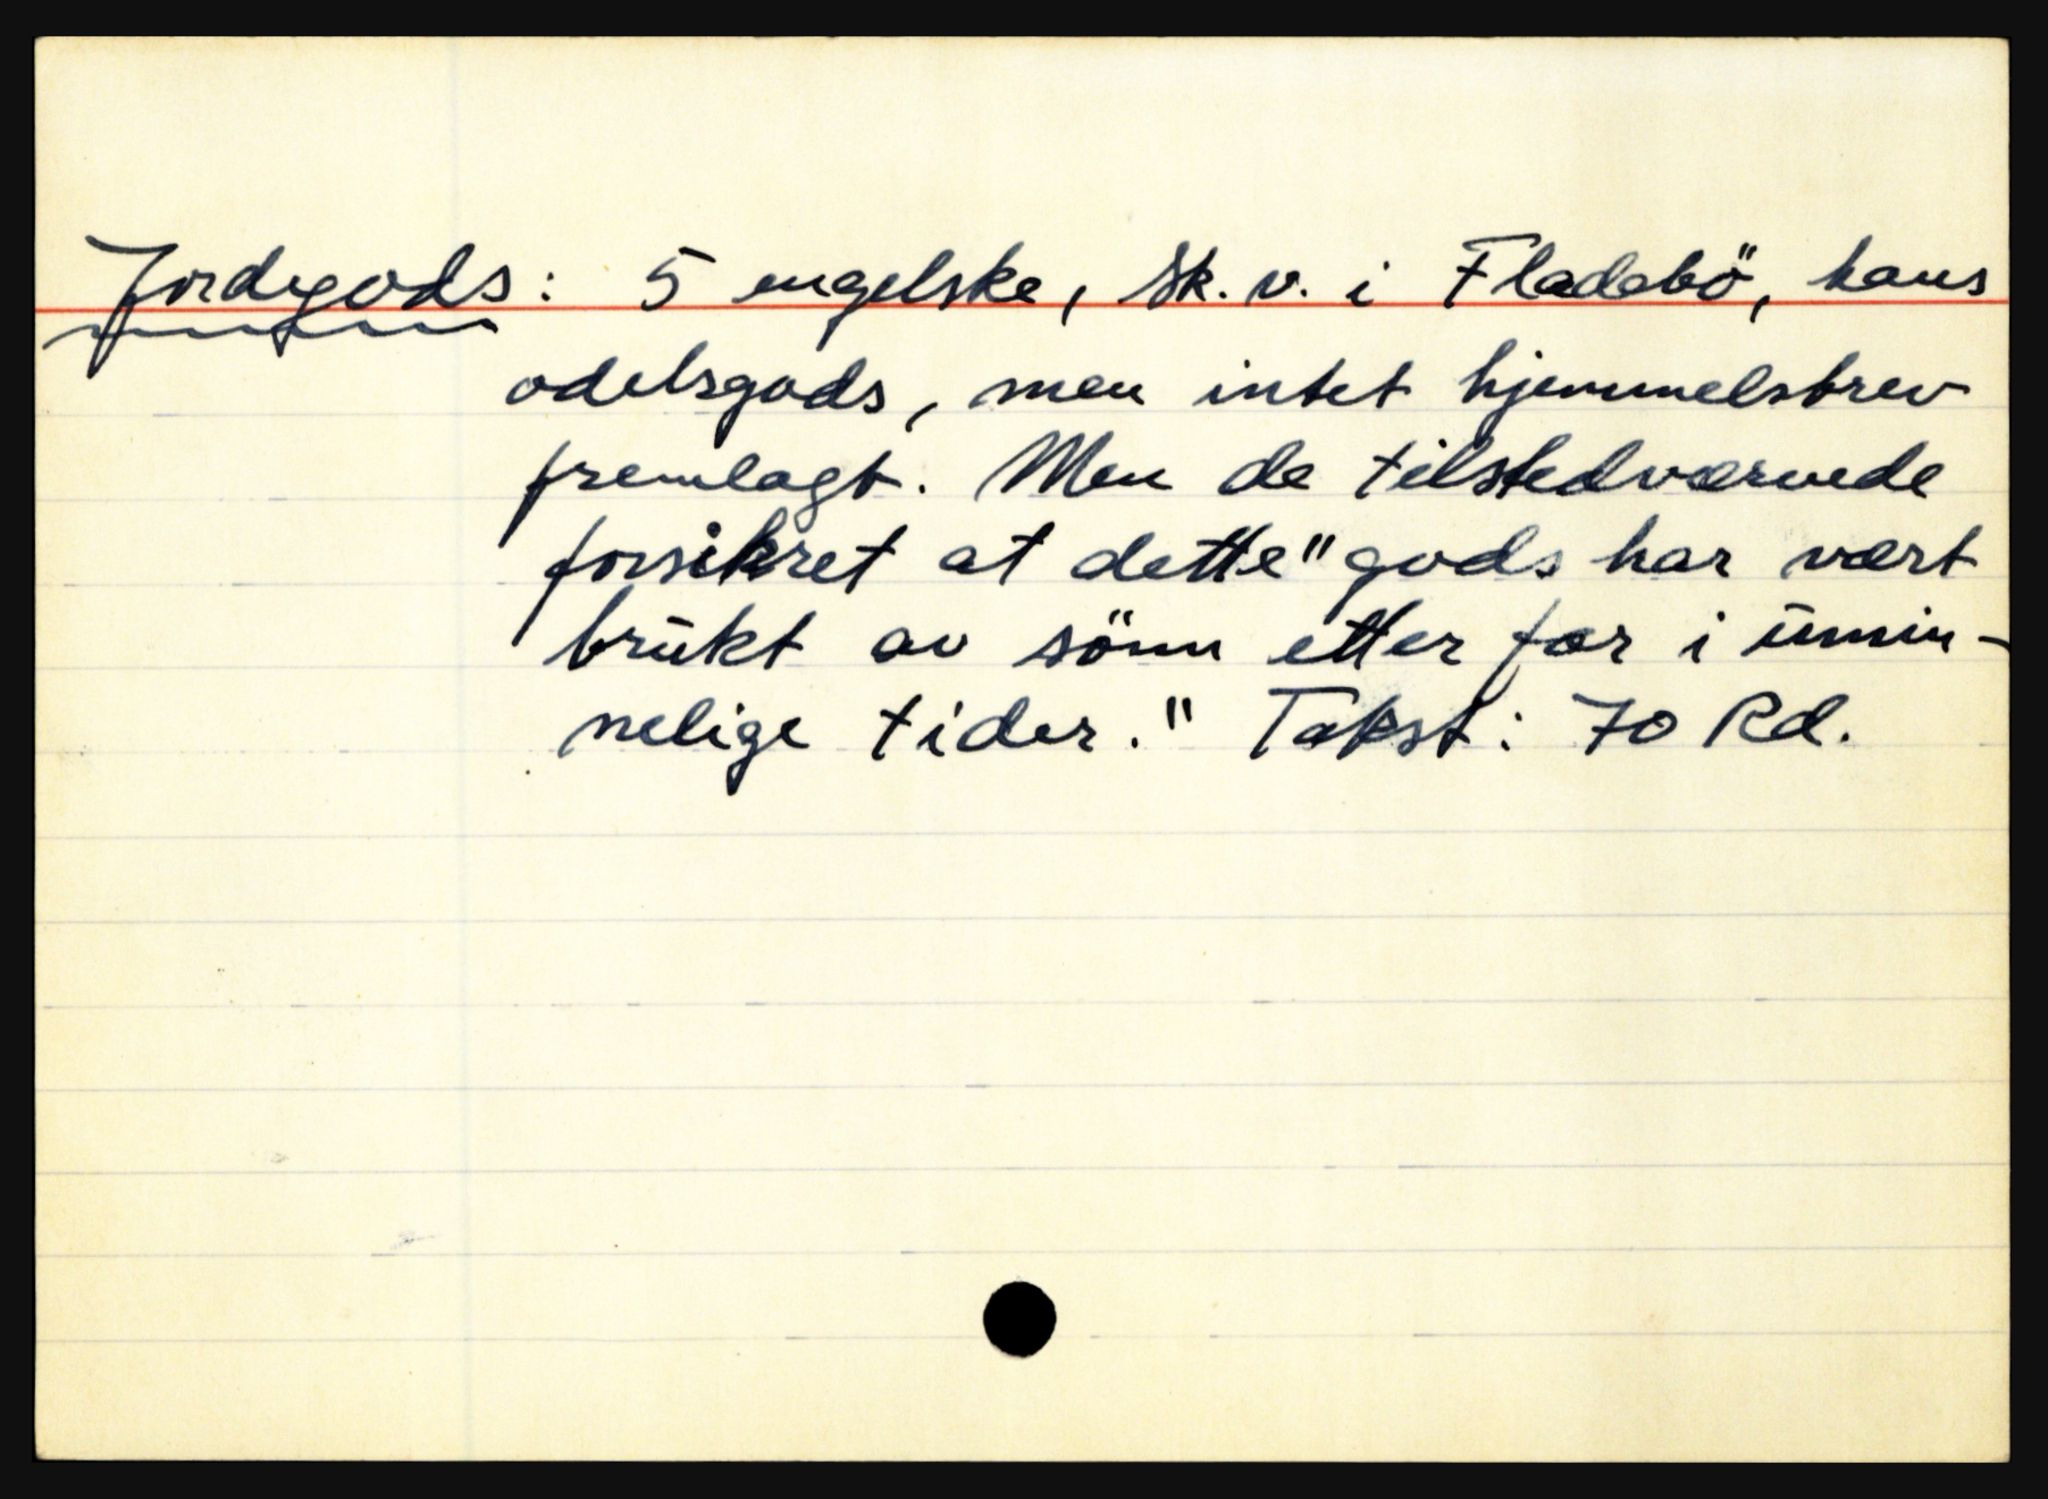 Jordegods: 5 engelske, Sk. v. i Fladebö, hans
odelsgods, men intet hjemmelsbrev
fremlagt. Men de tilstedværende
forsikret at dette "gods har vært
brukt av sönn etter far i umin-
nelige tider." Takst: 70 Rd.